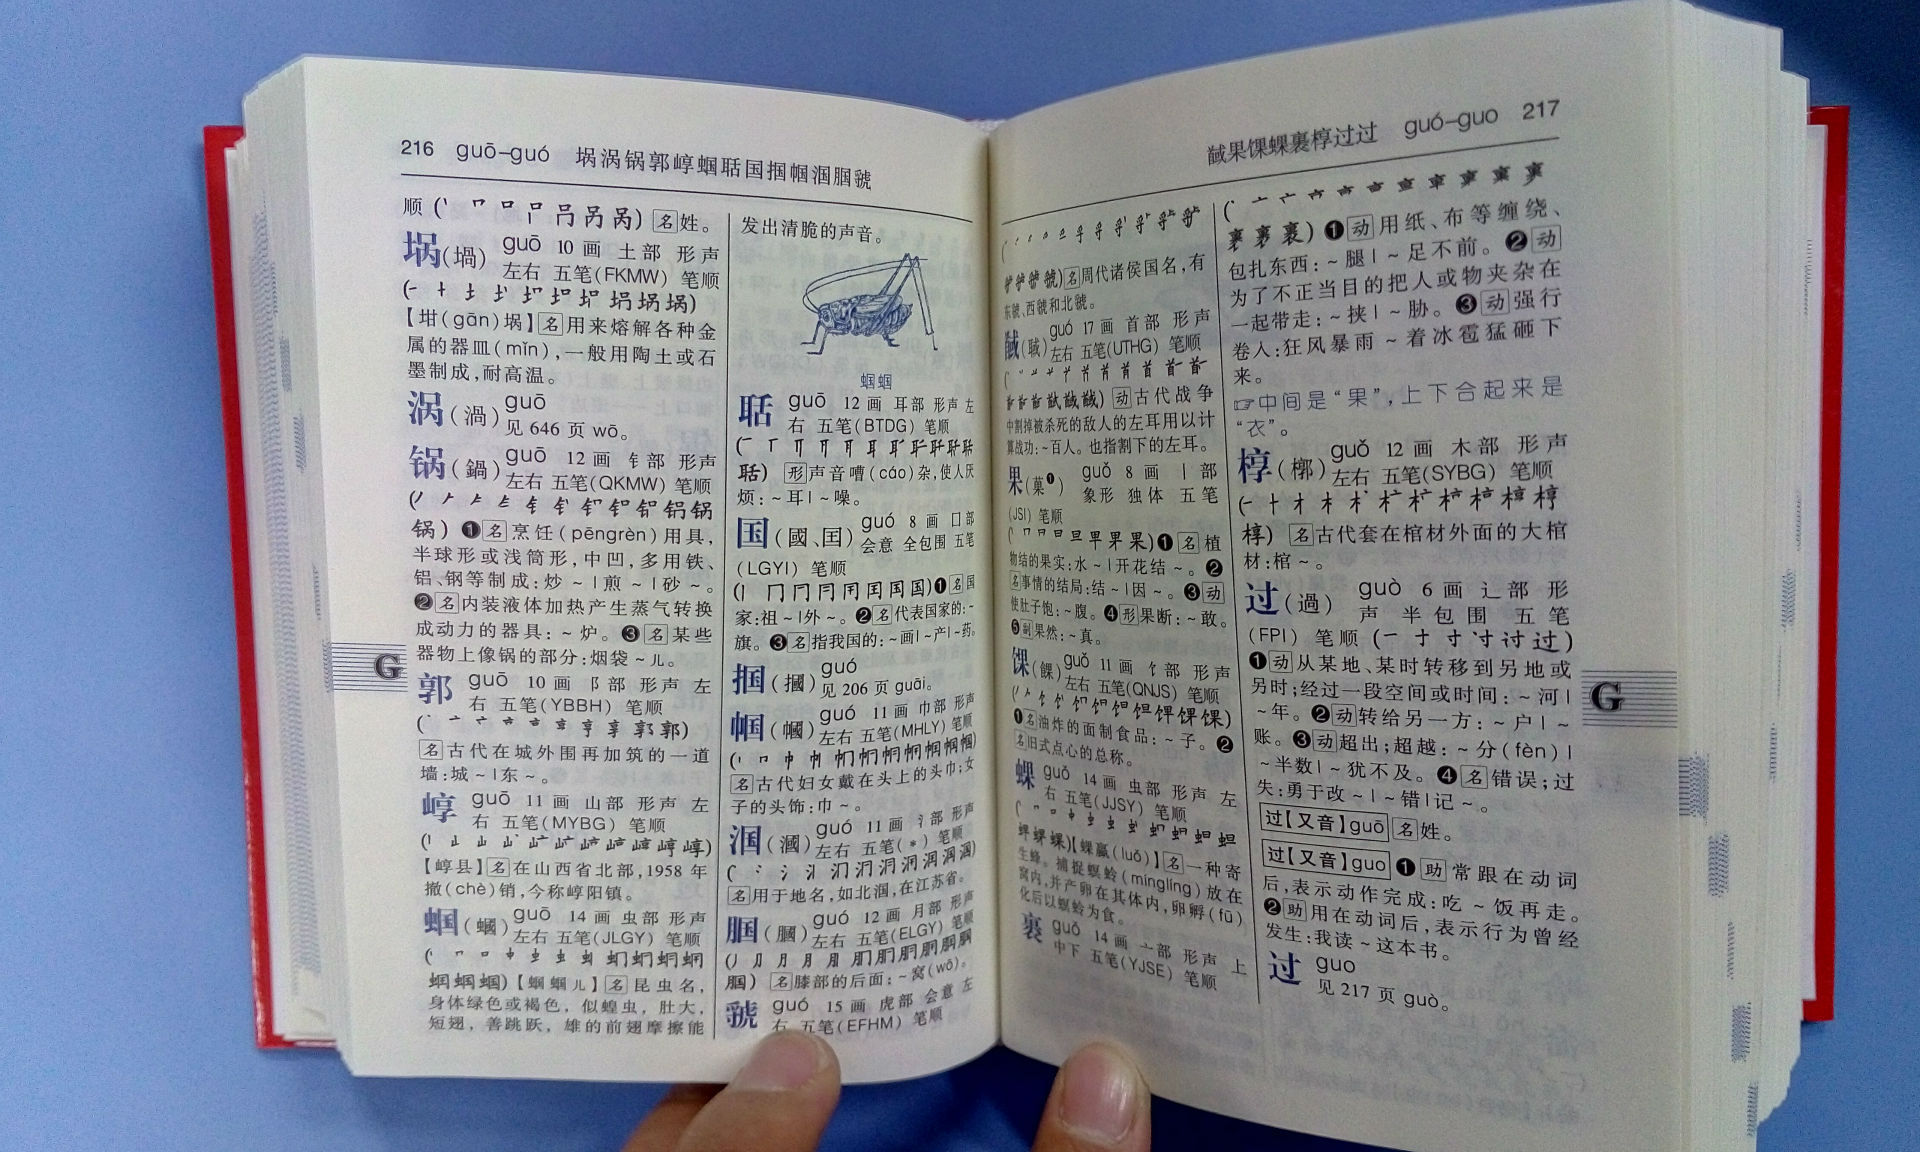 216 guō–guó 埚涡锅郭崞蝈聒国掴帼漍腘虢
顺(丨 冂 口 尸 吕 呙 呙)名姓。
埚(堝) guō 10 画 土部 形声
左右 五笔(FKMW) 笔顺
【坩(gān)埚】名用来熔解各种金
属的器皿(mǐn),一般用陶土或石
墨制成,耐高温。
涡(渦) guō
见 646 页 wō。
锅(鍋) guō 12 画 钅部 形声
左右 五笔(QKMW) 笔顺
锅) ❶名烹饪(pēngrèn)用具,
半球形或浅筒形,中凹,多用铁、
铝、钢等制成:炒~|煎~|砂~。
❷名内装液体加热产生蒸气转换
成动力的器具:~炉。❸名某些
器物上像锅的部分:烟袋~儿。
G
郭 guō 10 画 阝部 形声 左
右 五笔(YBBH) 笔顺
名古代在城外围再加筑的一道
墙:城~|东~。
崞 guō 11 画 山部 形声 左
右 五笔(MYBG) 笔顺
【崞县】名在山西省北部,1958 年
撤(chè)销,今称崞阳镇。
蝈(蟈) guō 14 画 虫部 形声
左右 五笔(JLGY) 笔顺
蝈蝈蝈)【蝈蝈儿】名昆虫名,
身体绿色或褐色, 似蝗虫, 肚大,
短翅, 善跳跃, 雄的前翅摩擦能
发出清脆的声音。
蝈蝈
聒 guō 12 画 耳部 形声 左
右 五笔(BTDG) 笔顺
聒) 形声音嘈(cáo)杂,使人厌
烦:~耳|~噪。
国(國、囯) guó 8 画 囗部
会意 全包围 五笔
(LGYI) 笔顺
(丨 冂 冂 冃 囯 国 国 国)❶名国
家:祖~|外~。❷名代表国家的:~
旗。❸名指我国的:~画|~产|~药。
掴(摑) guó
见 206 页 guāi。
帼(幗) guó 11 画 巾部 形声
左右 五笔(MHLY) 笔顺
名古代妇女戴在头上的头巾;女
子的头饰:巾~。
漍(漍) guó 11 画 氵部 形声
左右 五笔(*) 笔顺
名用于地名,如北漍,在江苏省。
腘(膕) guó 12 画 月部 形声
左右 五笔(ELGY) 笔顺
腘) 名膝部的后面:~窝(wō)。
虢 guó 15 画 虎部 会意 左
右 五笔(EFHM) 笔顺
馘果馃蜾裹椁过过 guó–guo 217
虢)名周代诸侯国名,有
东虢、西虢和北虢。
馘(聝) guó 17 画 首部 形声
左右 五笔(UTHG) 笔顺
馘) 动古代战争
中割掉被杀死的敌人的左耳用以计
算战功:~百人。也指割下的左耳。
果(菓❶) guǒ 8 画 丨部
象形 独体 五笔
(JSI) 笔顺
(丨 冂 日 日 旦 甲 果 果)❶名植
物结的果实:水~|开花结~。❷
名事情的结局:结~|因~。❸动
使肚子饱:~腹。❹形果断:~敢。
❺副果然:~真。
馃(餜) guǒ 11 画 饣部 形声
左右 五笔(QNJS) 笔顺
❶名油炸的面制食品:~子。❷
名旧式点心的总称。
蜾 guǒ 14 画 虫部 形声 左
右 五笔(JJSY) 笔顺
蜾)【蜾蠃(luǒ)】名一种寄
生蜂。捕捉螟蛉(mínglíng)放在
窝内,并产卵在其体内,卵孵(fū)
化后以螟蛉为食。
裹 guǒ 14 画 亠部 形声 上
中下 五笔(YJSE) 笔顺
裹) ❶动用纸、布等缠绕、
包扎东西:~腿|~足不前。❷动
为了不正当目的把人或物夹杂在
一起带走:~挟|~胁。❸动强行
卷人:狂风暴雨~着冰雹猛砸下
来。
☞中间是“果”,上下合起来是
“衣”。
椁(槨) guǒ 12 画 木部 形声
左右 五笔(SYBG) 笔顺
椁) 名古代套在棺材外面的大棺
材:棺~。
过(過) guò 6 画 辶部 形
声 半包围 五笔
(FPI) 笔顺 (一 十 寸 寸 讨 过)
❶动从某地、某时转移到另地或
另时;经过一段空间或时间:~河|
~年。❷动转给另一方:~户|~
账。❸动超出;超越:~分(fèn)|
~半数|~犹不及。❹名错误;过
失:勇于改~|~错|记~。
过【又音】guō 名姓。
过【又音】guo ❶助常跟在动词
后,表示动作完成:吃~饭再走。
❷助用在动词后,表示行为曾经
发生:我读~这本书。
过 guo
见 217 页 guò。
G